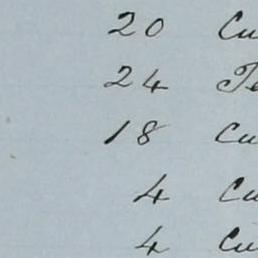 20 Cu
24 Te
18 Cu
4 Cu
4 Cu